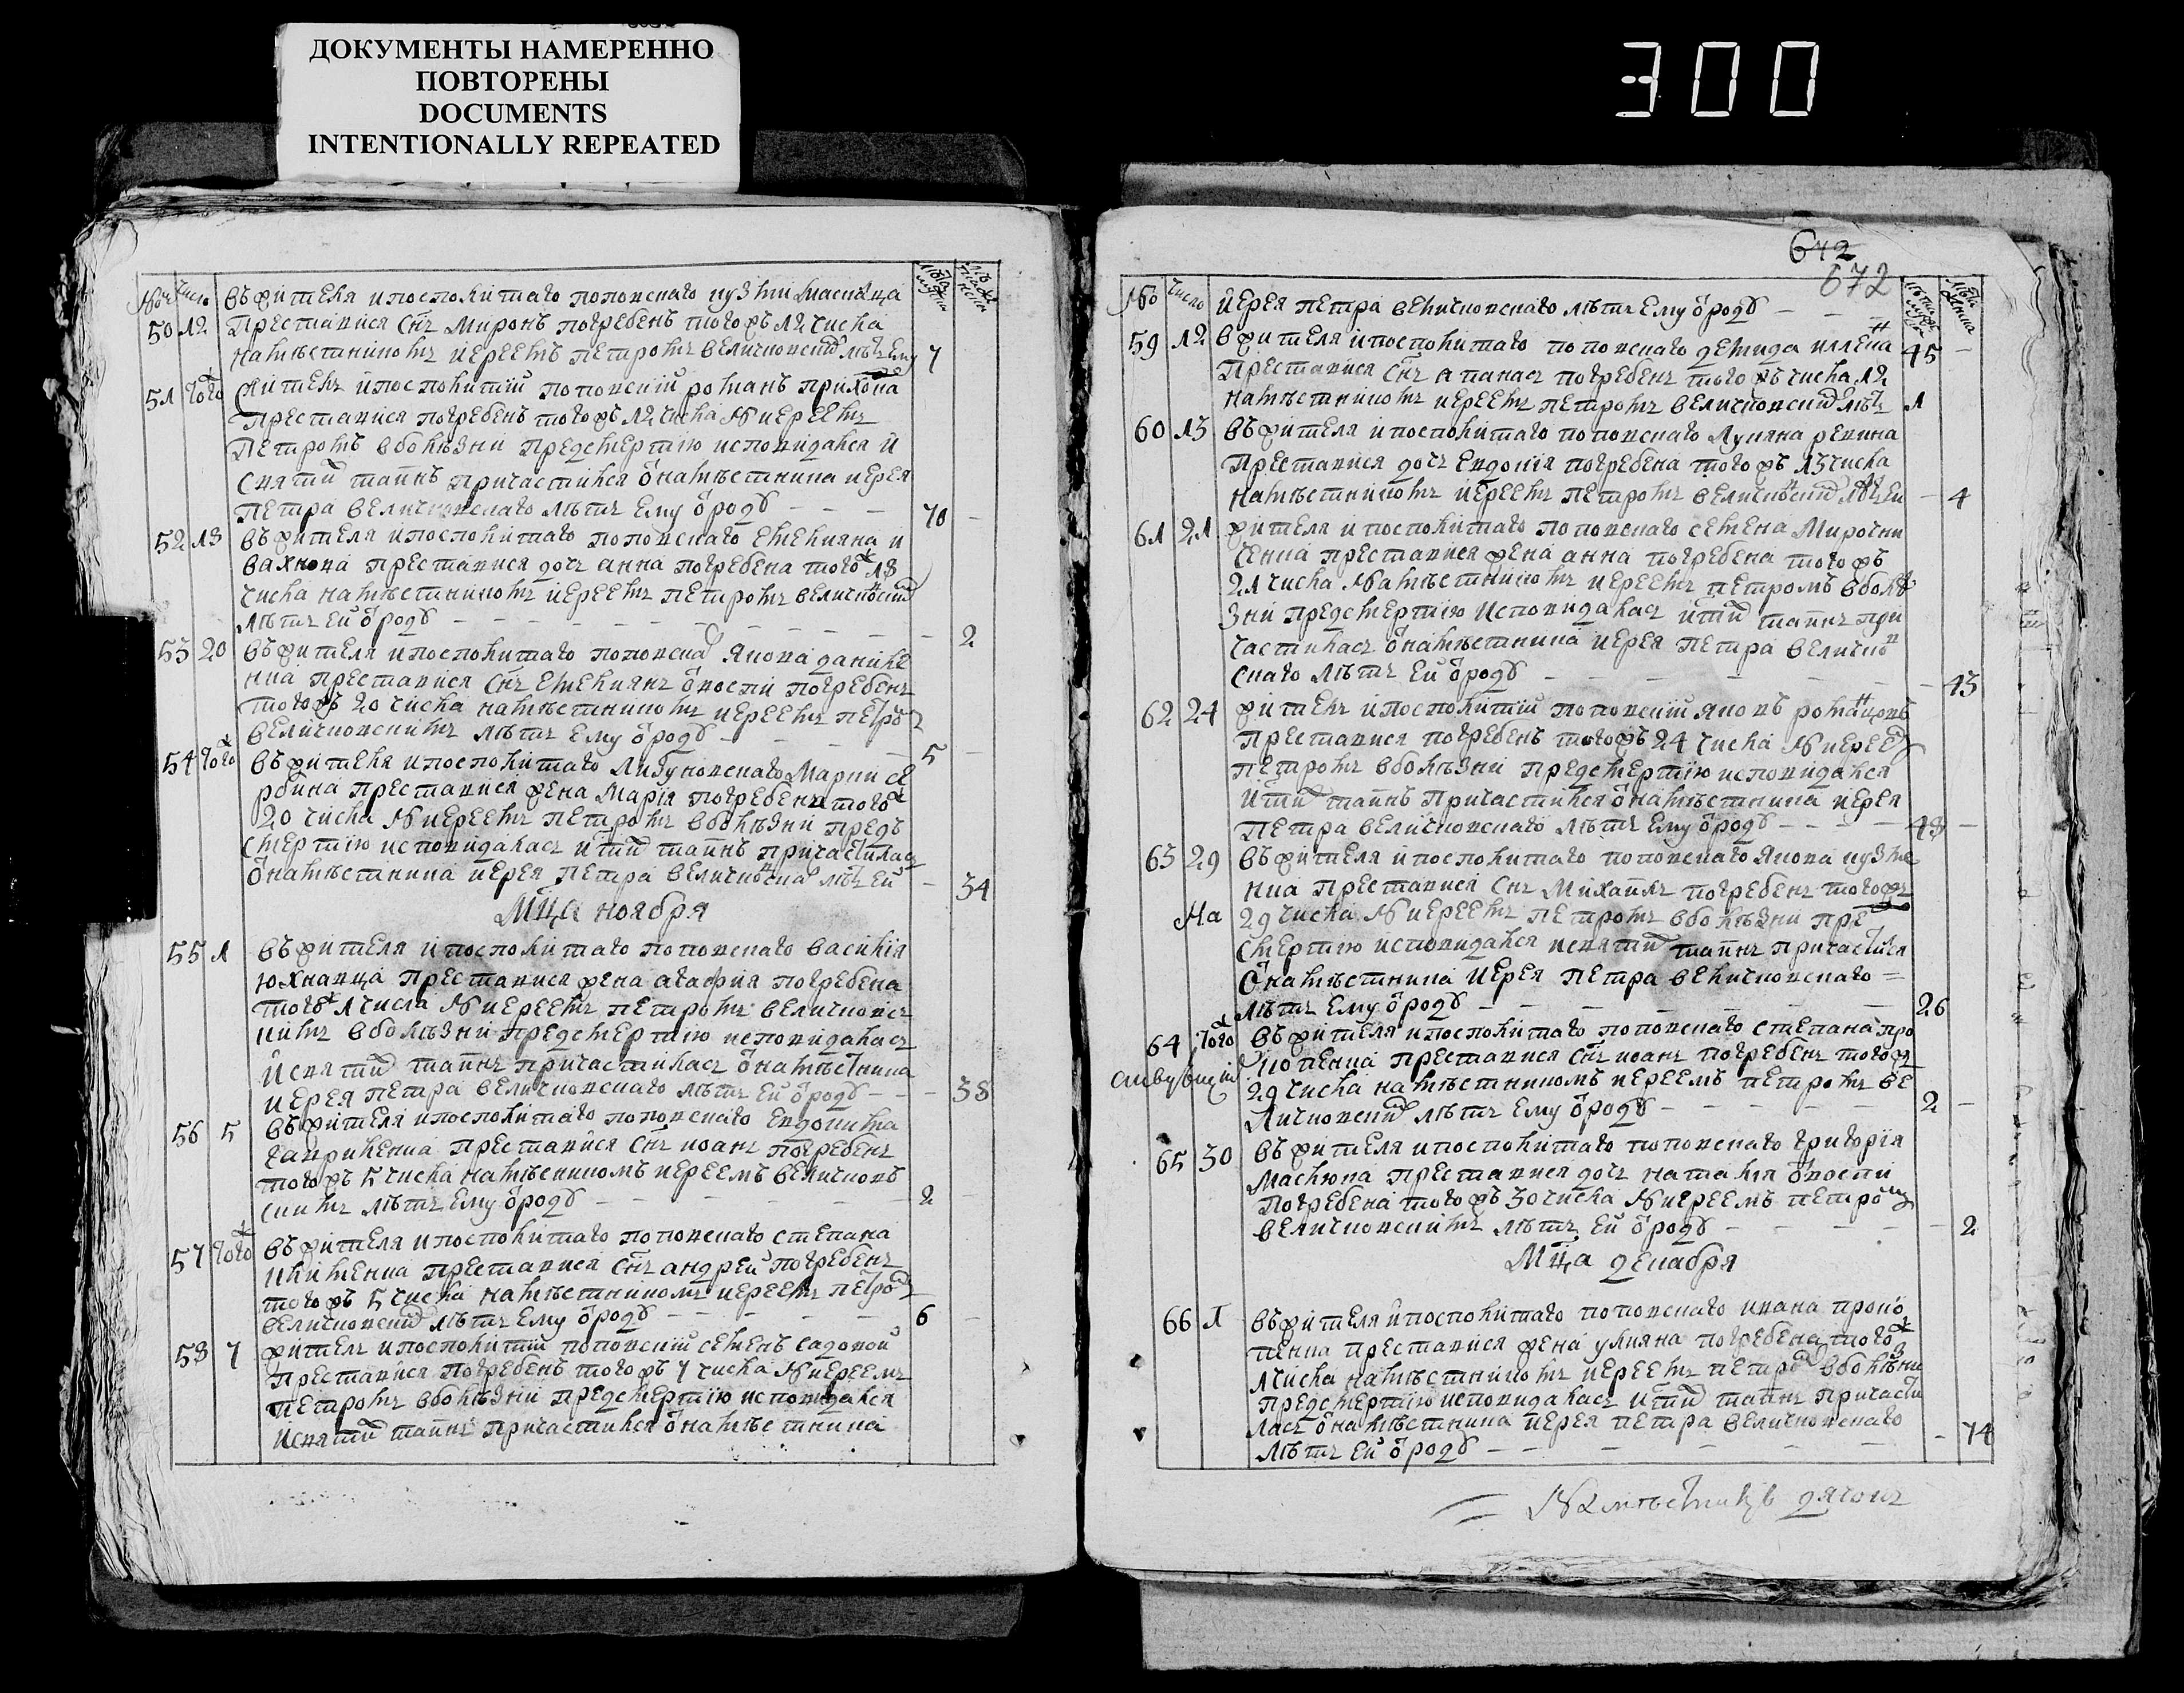 ДОКУМЕНТЫ НАМЕРЕННО
ПОВТОРЕНЫ
DOCUMENTS
INTENTIONALLY REPEATED
300
въ жителя и посполитаго поповскаго
50 12 Преставися снъ Миронъ погребенъ тогожъ 12 числа
намѣстникомъ иереемъ Петромъ величковски лѣтъ ему 7
51 того жителъ и посполитий поповский романъ
преставися погребенъ тогожъ 12 числа N иереемъ
Петромъ вболѣзни предсмертию исповидался и
святи таинъ причастился ѿ намѣстника иерея
петра величковскаго лѣтъ ему ѿ роду 70
52 13 въ жителя и посполитаго поповскаго емелияна и
вахнова преставися дочъ анна погребена того 13
числа намѣстникомъ иереемъ петромъ величковски
лѣтъ ей ѿ роду 2
53 20 въ жителя и посполитаго поповска якова даниле
нка преставися снъ емелиянъ ѿ воспи погребенъ
тогожъ 20 числа намѣстникомъ иереемъ петром
величковскимъ лѣтъ ему ѿ роду 5
54 того въ жителя и посполитаго Мартн
преставися жена Мария погребена того
20 числа N иереемъ петромъ вболѣзни предъ
смертию исповидалась и таинъ причастилась
ѿ намѣстника иерея петра величковска лѣтъ ей 34
Мца ноября
55 1 въ жителя и посполитаго поповскаго василия
юхнавца преставися жена агафия погребена
того 1 числа N иереемъ петромъ величковск
имъ вболѣзни предсмертию исповидалась
и святи таинъ причастилась ѿ намѣстника
иерея петра величковскаго лѣтъ ей ѿ роду 38
56 5 въ жителя и посполитаго поповскаго евдокима
гавриленка преставися снъ иоанъ погребенъ
тогожъ 5 числа намѣсникомъ иереемъ величков
скимъ лѣтъ ему ѿ роду 2
57 того въ жителя и посполитаго поповскаго степана
клименка преставися снъ андрей погребенъ
тогожъ 5 числа намѣстникомъ иереемъ петром
величковски лѣтъ ему ѿ роду 6
58 7 жителъ и посполитий поповский семенъ садовой
преставися погребенъ тогожъ 7 числа N иереемъ
петромъ вболѣзни предсмертию исповидался
и святи таинъ причастился ѿ намѣстника
642
672
No число
иерея петра величковскаго лѣтъ ему ѿ роду 45
59 12 в жителя и посполитаго поповскаго демида
преставися снъ апанас погребенъ тогожъ числа 12
намѣстникомъ иереемъ петромъ величковски лѣтъ 1
60 13 въ жителя и посполитаго поповскаго Лукяна ревина
преставися дочъ Евдокия погребена тогожъ 13 числа
намѣстникомъ иереемъ петромъ величковски лѣтъ ей 4
61 21 жителя и посполитаго поповскаго семена Мирошни
ченка преставися жена анна погребена тогожъ
21 числа намѣстникомъ иереемъ петромъ вболѣ
зни предсмертию исповидалась и таинъ при
частилась ѿ намѣстника иерея петра величков
скаго лѣтъ ей ѿ роду 43
62 24 жителъ и посполитий поповский яковъ
преставися погребенъ тогожъ 24 числа N иерее
петромъ вболѣзни предсмертию исповидался
и таинъ причастился ѿ намѣстника иерея
петра величковскаго лѣтъ ему ѿ роду 48
63 29 въ жителя и посполитаго поповскаго Якова кузме
нка преставися снъ Михаилъ погребенъ тогожъ
На 29 числа N иереемъ петромъ вболѣзни пре
смертию исповидался и святи таинъ причастися
ѿ намѣстника иерея петра величковскаго
лѣтъ ему ѿ роду 26
64 того въ жителя и посполитаго поповскаго степана про
копенка преставися снъ иоанъ погребенъ тогож
29 числа намѣстникомъ иереемъ петромъ ве
личковски лѣтъ ему ѿ роду 2
65 30 въ жителя и посполитаго поповскаго григория
Маслюка преставися дочъ наталия ѿ воспи
погребена тогожъ 30 числа N иереемъ петром
величковскимъ лѣтъ ей ѿ роду 2
Мца декабря
66 1 въ жителя и посполитаго поповскаго ивана проко
пенка преставися жена улияна погребена того
1 числа намѣстникомъ иереемъ петро вболѣзни
предсмертию исповидалась и таинъ причасти
лась ѿ намѣстника иерея петра величковскаго
лѣтъ ей ѿ роду 74